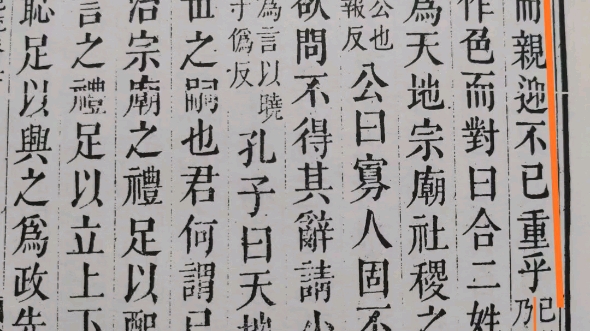 而親迎不已重乎 已乃
作色而對曰合二姓
爲天地宗廟社稷之
公也報反 公曰寡人固不
欲問不得其辭請少
爲言以曉 子僞反 孔子曰天地
世之嗣也君何謂已
治宗廟之禮足以配
言之禮足以立上下
恥足以興之爲政先